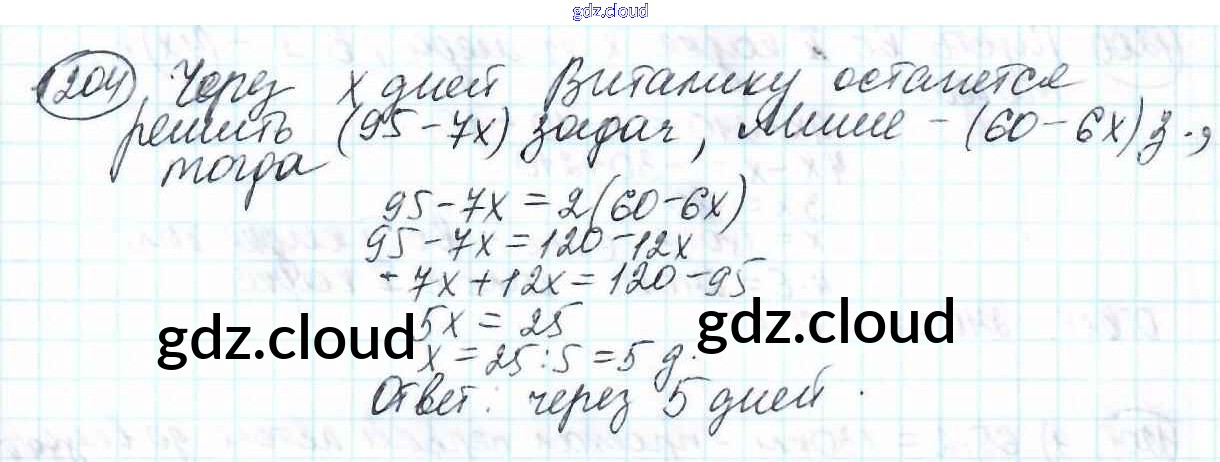 gdz.cloud
1204 Через x дней Виталику останется
решить (95-7x) задач, Мише - (60-6x) з.,
тогда
95-7x=2(60-6x)
95-7x=120-12x
-7x+12x=120-95
5x=25
gdz.cloud gdz.cloud
x=25:5=5 д.
Ответ: через 5 дней.